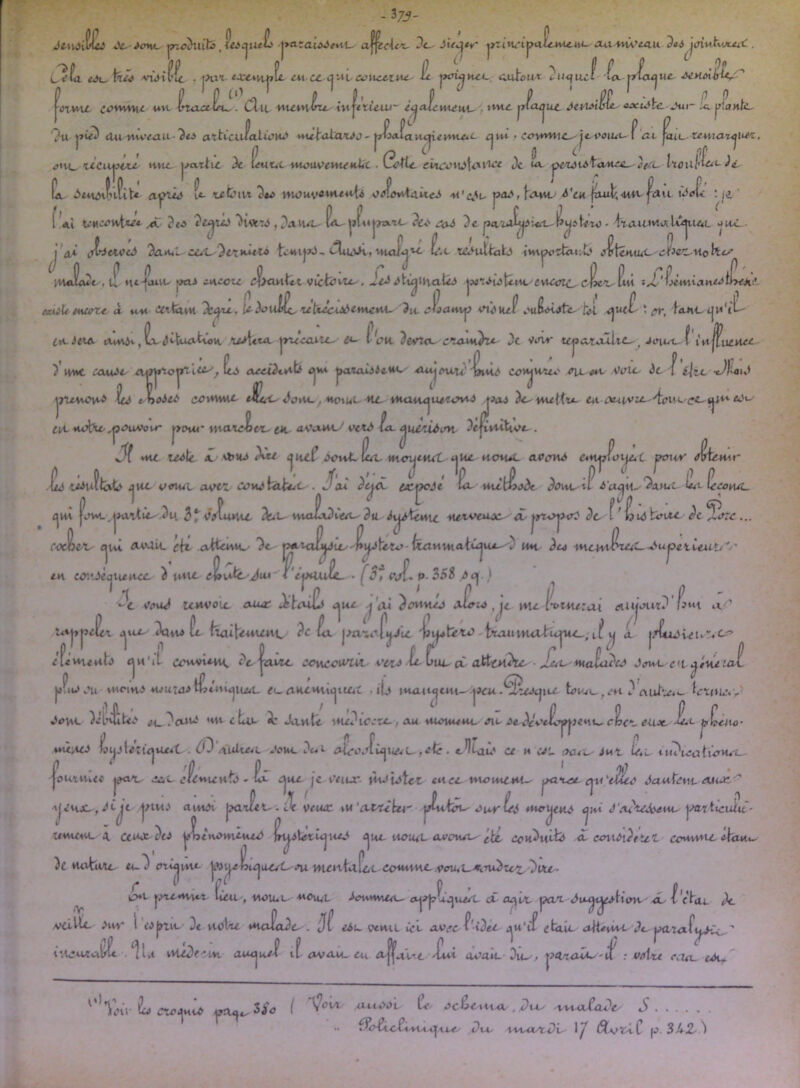 - 379 -
sensibles se sont produits, lesquels paraissent affecter de siéger principalement au niveau des jointures.
Cela est très visible, par exemple en ce qui concerne le poignet, autour duquel la plaque sensible
forme comme un bracelet. Au membre inférieur également, une plaque sensible existe sur la plante
du pied au niveau des articulations métatarso-phalangiennes qui, comme je vous l'ai fait remarquer,
ont récupéré une partie de leurs mouvements. Cette circonstance de la persistance des troubles de
la sensibilité après le retour des mouvements volontaires n'est pas, tant s'en faut, un fait isolé : je
l'ai rencontrée, à des degrés divers, dans la plupart des cas de paralysies hystéro-traumatiques que
j'ai observés dans ces derniers temps. Aussi, malgré les résultats importants obtenus chez notre
malade, il ne faut pas encore chanter victoire. Les stigmates persistent encore chez lui : L'hémianesthésie
existe encore à un certain degré, le double rétrécissement du champ visuel subsiste tel quel : or, tant qu'il
en sera ainsi, la situation restera précaire et l'on devra craindre de voir reparaître, sous l'influence
d'une cause appropriée, les accidents qui paraissent aujourd'hui conjurés ou en voie de l'être. Mais
prenons les choses comme elles sont, nous ne manquerons pas de mettre en œuvre tout ce qui est
en notre pouvoir pour marcher en avant vers la guérison définitive.
Il me reste à vous dire quels sont les moyens que nous avons employés pour obtenir
les résultats que vous avez constatés. J'ai déjà exposé la méthode dont il s'agit dans les leçons
qui font partie du 3e volume des maladies du système nerveux à propos de l'histoire de Porc...
cocher qui avait été atteint de paralysie hystéro-traumatique d'un des membres supérieurs
en conséquence d'une chute sur l'épaule. (3e vol. p. 358 sq.)
Je vous renvoie aux détails que j'ai donnés alors, je me bornerai aujourd'hui à
rappeler que dans le traitement de la paralysie hystéro-traumatique, il y a plusieurs
éléments qu'il convient de faire concourir vers le but à atteindre. Les malades sont en général
plus ou moins neurasthéniques et anémiques ; ils mangent peu. Presque tous, en d'autres termes,
sont débilités et dans un état de santé médiocre, au moment où se développent chez eux les phéno-
mènes hystériques. D'autres sont des alcooliques, etc. Mais ce n'est pas sur les indications
fournies par ces éléments-là que je veux insister en ce moment parce qu'elles sautent aux
yeux, si je puis ainsi parler. Je veux m'arrêter plutôt sur les moyens qui s'adressent particuliè-
rement à ceux des phénomènes hystériques que nous avons été conduits à considérer comme étant
de nature et d'origine psychiques ou mentales comme vous voudrez dire.
En premier lieu, nous nous sommes appliqués à agir par suggestion à l'état de
veille sur l'esprit de notre malade. Il est venu ici avec l'idée qu'il était atteint de paralysie
incurable. Un médecin auquel il avait eu affaire lui avait dit, paraît-il : votre cas est
(1) Voir les croquis page 380 ( Voir aussi le schema, du malade S......
" Policlinique du mardi 17 Avril p. 342.)